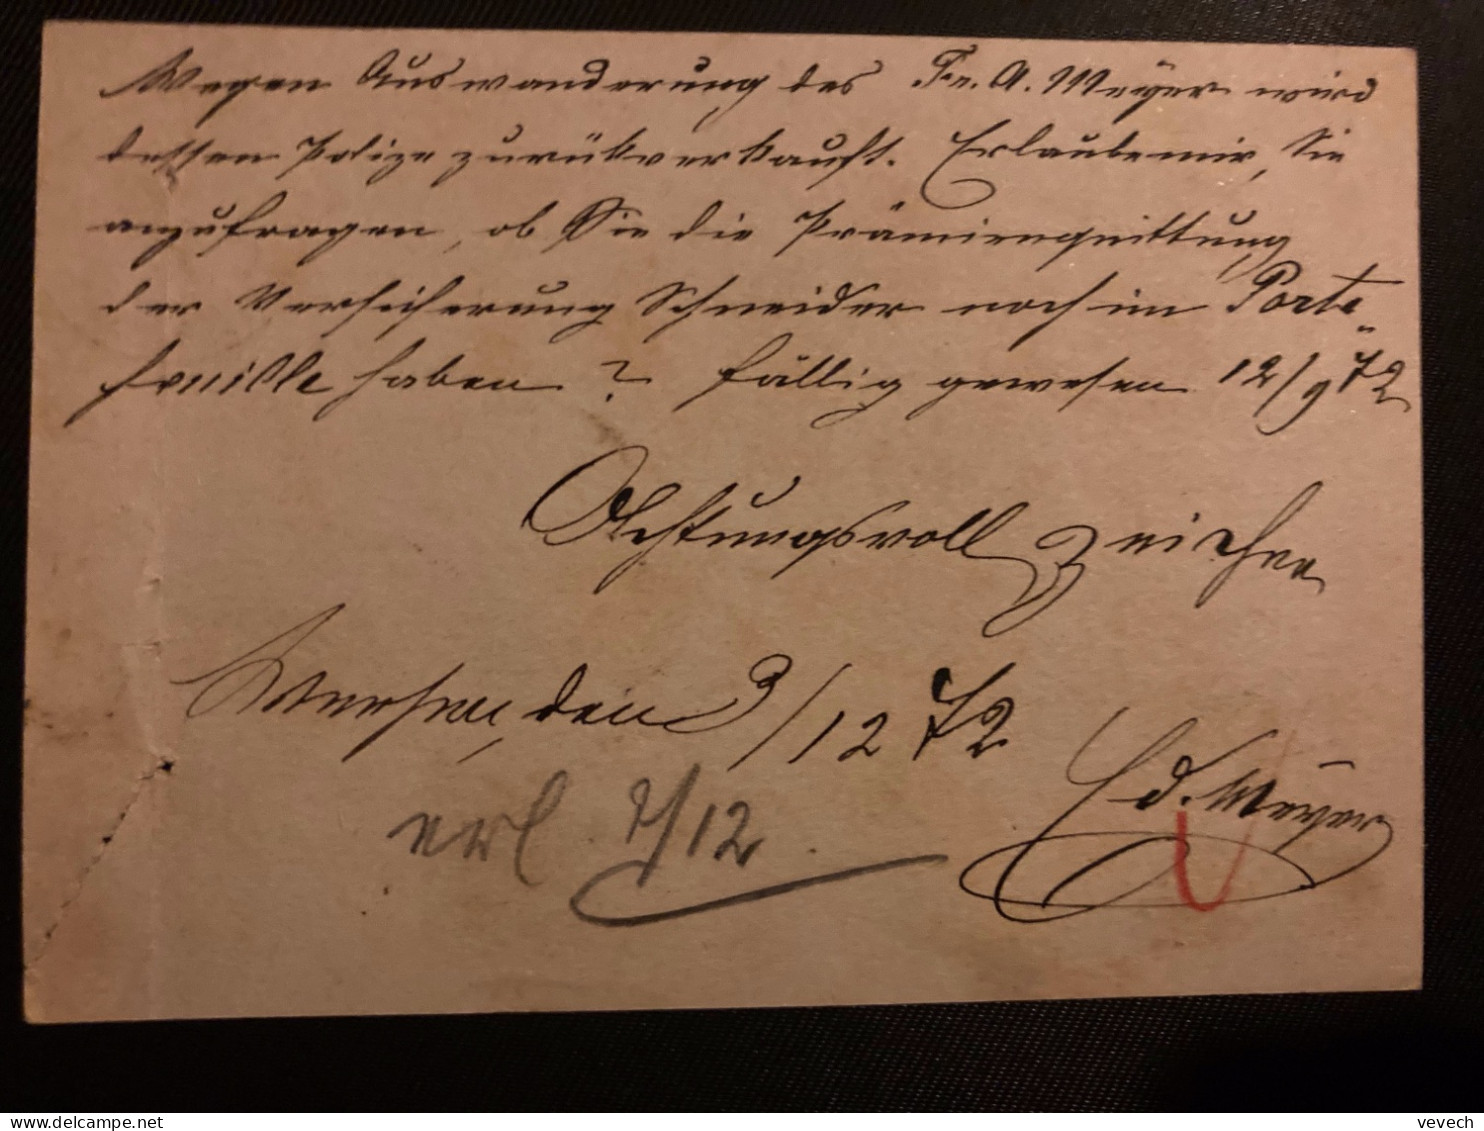 Wegen Auswanderung des Fr. A. Meÿer wird
dessen Polize zurükverkauft. Erlaube mir, Sie
anzufragen, ob Sie die Prämienquittung
der Versicherung Schneider noch im Porte
feuille haben? fällig gewesen 12/9 72
Achtungsvoll zeichne
den 3/12 72
Ed. Meÿer
erl. 7/12.
vevech